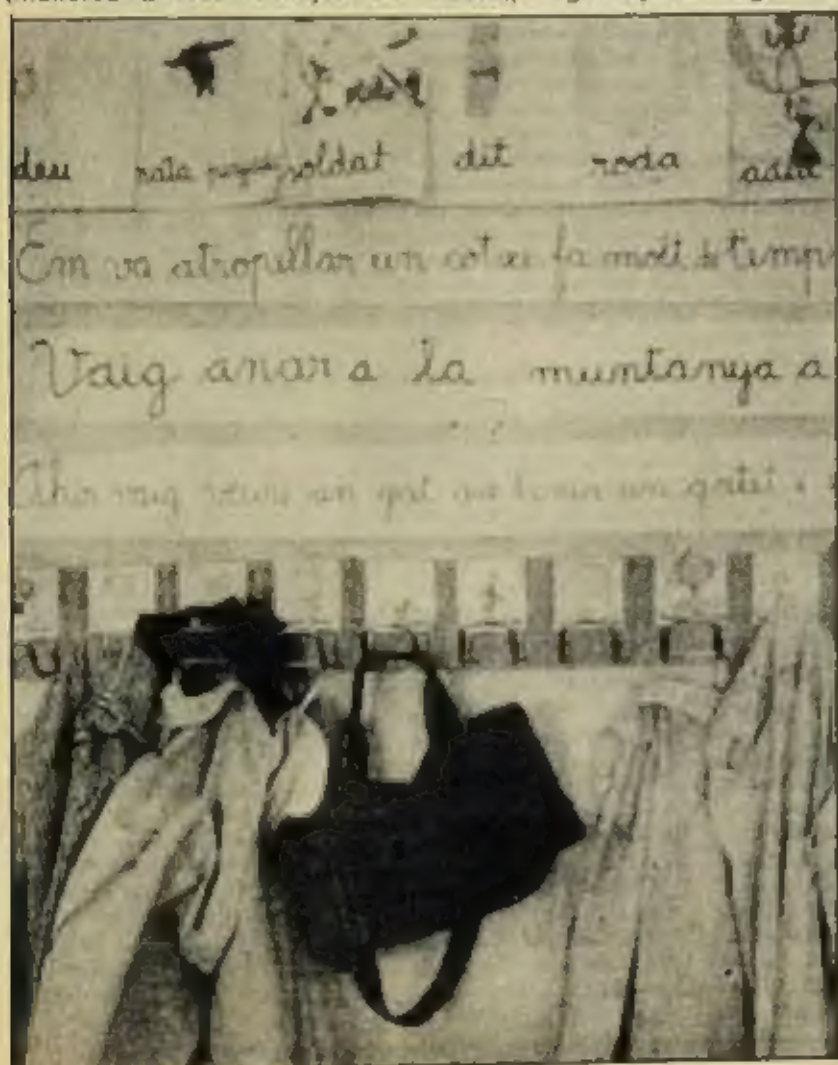 deu rata soldat dit roda
Em va atropellar un cotxe fa molt de temp
Vaig anar a la muntanya a
Ahir vaig veure un gat un gatet i